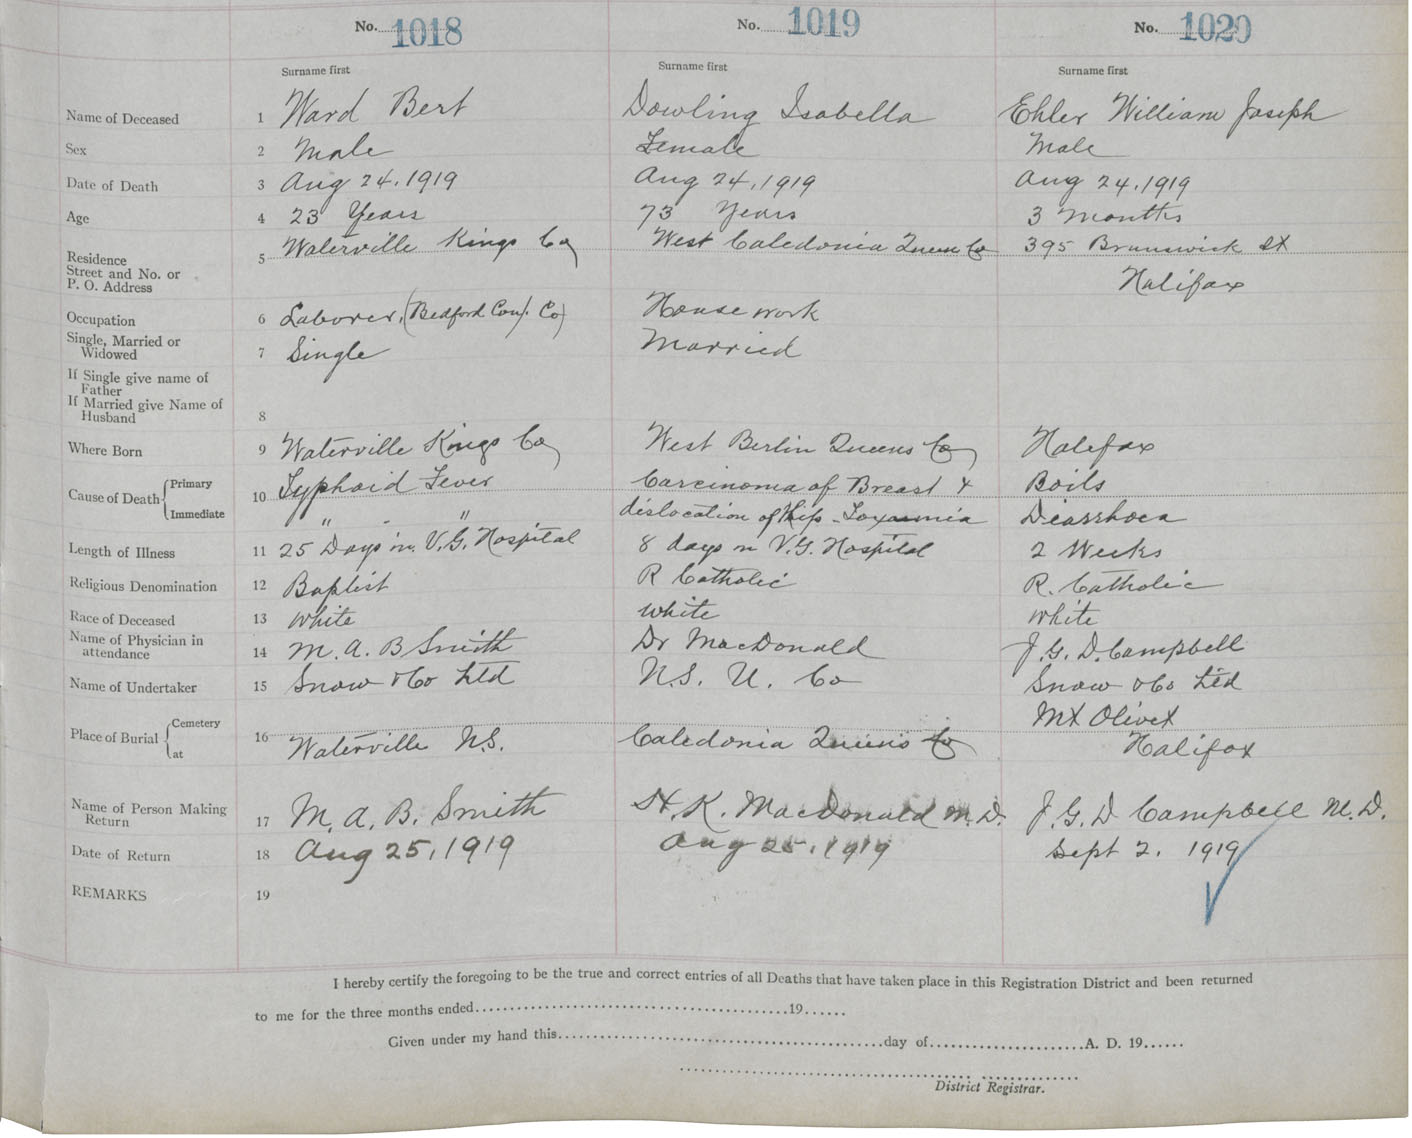 No. 1018 No. 1019 No. 1020
Surname first Surname first Surname first
Name of Deceased 1 Ward Bert Dowling Isabella Ehler William Joseph
Sex 2 Male Female Male
Date of Death 3 Aug 24, 1919 Aug 24, 1919 Aug 24, 1919
Age 4 23 Years 73 Years 3 Months
Residence 5 Waterville Kings Co West Caledonia Queen Co 395 Brunswick St
Street and No. or
P. O. Address Halifax
Occupation 6 Laborer, (Bedford Con. Co) House work
Single, Married or
Widowed 7 Single Married
If Single give name of
Father
If Married give Name of
Husband 8
Where Born 9 Waterville Kings Co West Berlin Queens Co Halifax
Cause of Death Primary 10 Typhoid Fever Carcinoma of Breast & Boils
Immediate " " " dislocation of Hip - Toxaemia Diarrhoea
Length of Illness 11 25 Days in V.G. Hospital 8 days in V.G. Hospital 2 Weeks
Religious Denomination 12 Baptist R Catholic R. Catholic
Race of Deceased 13 White White White
Name of Physician in
attendance 14 M. A. B Smith Dr MacDonald J. G. D. Campbell
Name of Undertaker 15 Snow & Co Ltd N.S. U. Co Snow & Co Ltd
Place of Burial Cemetery 16 Mt Olivet
at Waterville N.S. Caledonia Queens Co Halifax
Name of Person Making
Return 17 M. A. B. Smith K. MacDonald M.D. J. G. D Campbell M.D.
Date of Return 18 Aug 25, 1919 Aug 25, 1919 Sept 2, 1919
REMARKS 19
I hereby certify the foregoing to be the true and correct entries of all Deaths that have taken place in this Registration District and been returned
to me for the three months ended..........19......
Given under my hand this..........day of..........A. D. 19......
District Registrar.